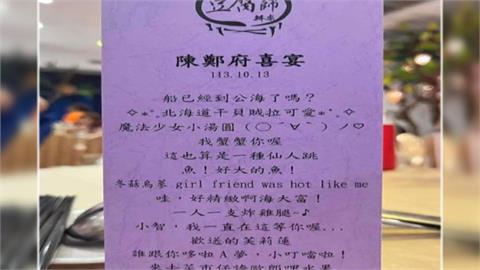 師
辦桌
陳鄭府喜宴
113.10.13
船已經到公海了嗎？
✧*｡北海道干貝賊拉可愛*｡✧
魔法少女小湯圓 (○´∀`)ノ♡
我蟹蟹你喔
這也算是一種仙人跳
魚！好大的魚！
冬菇烏蔘 girl friend was hot like me
哇，好精緻啊海大富！
一人一支炸雞腿~♪
小智，我一直在這等你喔...
歡送的芙莉蓮
誰跟你哆啦A夢，小叮噹啦！
水果